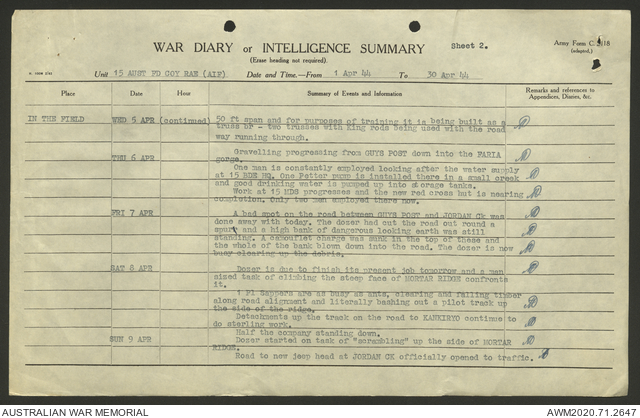 WAR DIARY or INTELLIGENCE SUMMARY Sheet 2. Army Form C. 2118
(Erase heading not required). (adapted.)
Unit 15 AUST FD COY RAE (AIF) Date and Time.—From 1 Apr 44 To 30 Apr 44
Place Date Hour Summary of Events and Information Remarks and references to Appendices, Diaries, &c.
IN THE FIELD WED 5 APR (continued) 50 ft span and for purposes of training it is being built as a
truss br - two trusses with king rods being used with the road
way running through.
THU 6 APR Gravelling progressing from GUYS POST down into the FARIA
gorge.
One man is constantly employed looking after the water supply
at 15 BDE HQ. One Petter pump is installed there in a small creek
and good drinking water is pumped up into storage tanks.
Work at 15 MDS progresses and the new red cross hut is nearing
completion. Only two men employed there now.
FRI 7 APR A bad spot on the road between GUYS POST and JORDAN Ck was
done away with today. The dozer had cut the road out round a
spur and a high bank of dangerous looking earth was still
standing. A camouflet charge was sunk in the top of these and
the whole of the bank blown down into the road. The dozer is now
busy clearing up the debris.
SAT 8 APR Dozer is due to finish its present job tomorrow and a man
sized task of climbing the steep face of MORTAR RIDGE confronts
it.
1 Pl Sappers are as busy as ants, clearing and falling timber
along road alignment and literally bashing out a pilot track up
the side of the ridge.
Detachments up the track on the road to KANKIRYO continue to
do sterling work.
Half the company standing down.
SUN 9 APR Dozer started on task of "scrambling" up the side of MORTAR
RIDGE.
Road to new jeep head at JORDAN CK officially opened to traffic.
AUSTRALIAN WAR MEMORIAL AWM2020.71.2647